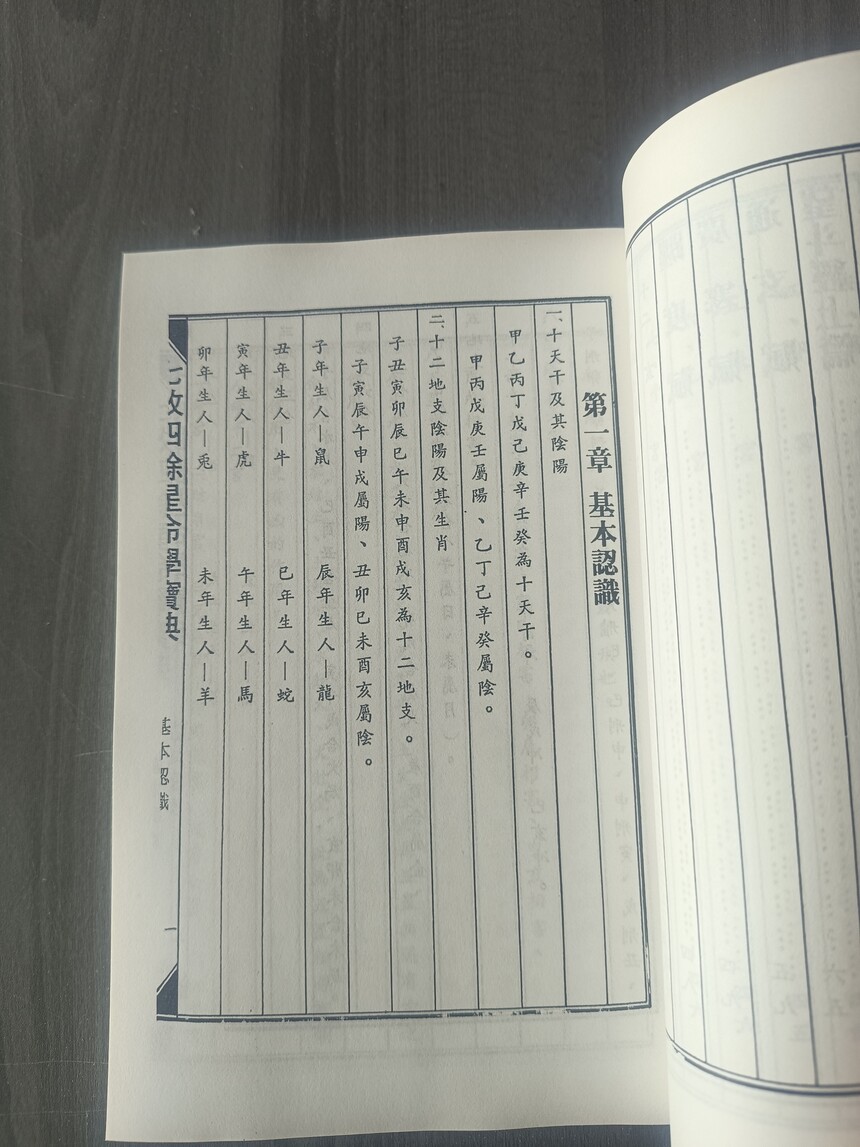 第一章 基本認識
一、十天干及其陰陽
甲乙丙丁戊己庚辛壬癸為十天干。
甲丙戊庚壬屬陽、乙丁己辛癸屬陰。
二、十二地支陰陽及其生肖
子丑寅卯辰巳午未申酉戌亥為十二地支。
子寅辰午申戌屬陽、丑卯巳未酉亥屬陰。
子年生人—鼠 辰年生人—龍
丑年生人—牛 巳年生人—蛇
寅年生人—虎 午年生人—馬
卯年生人—兎 未年生人—羊
七政四餘星命學寶典 基本認識 一